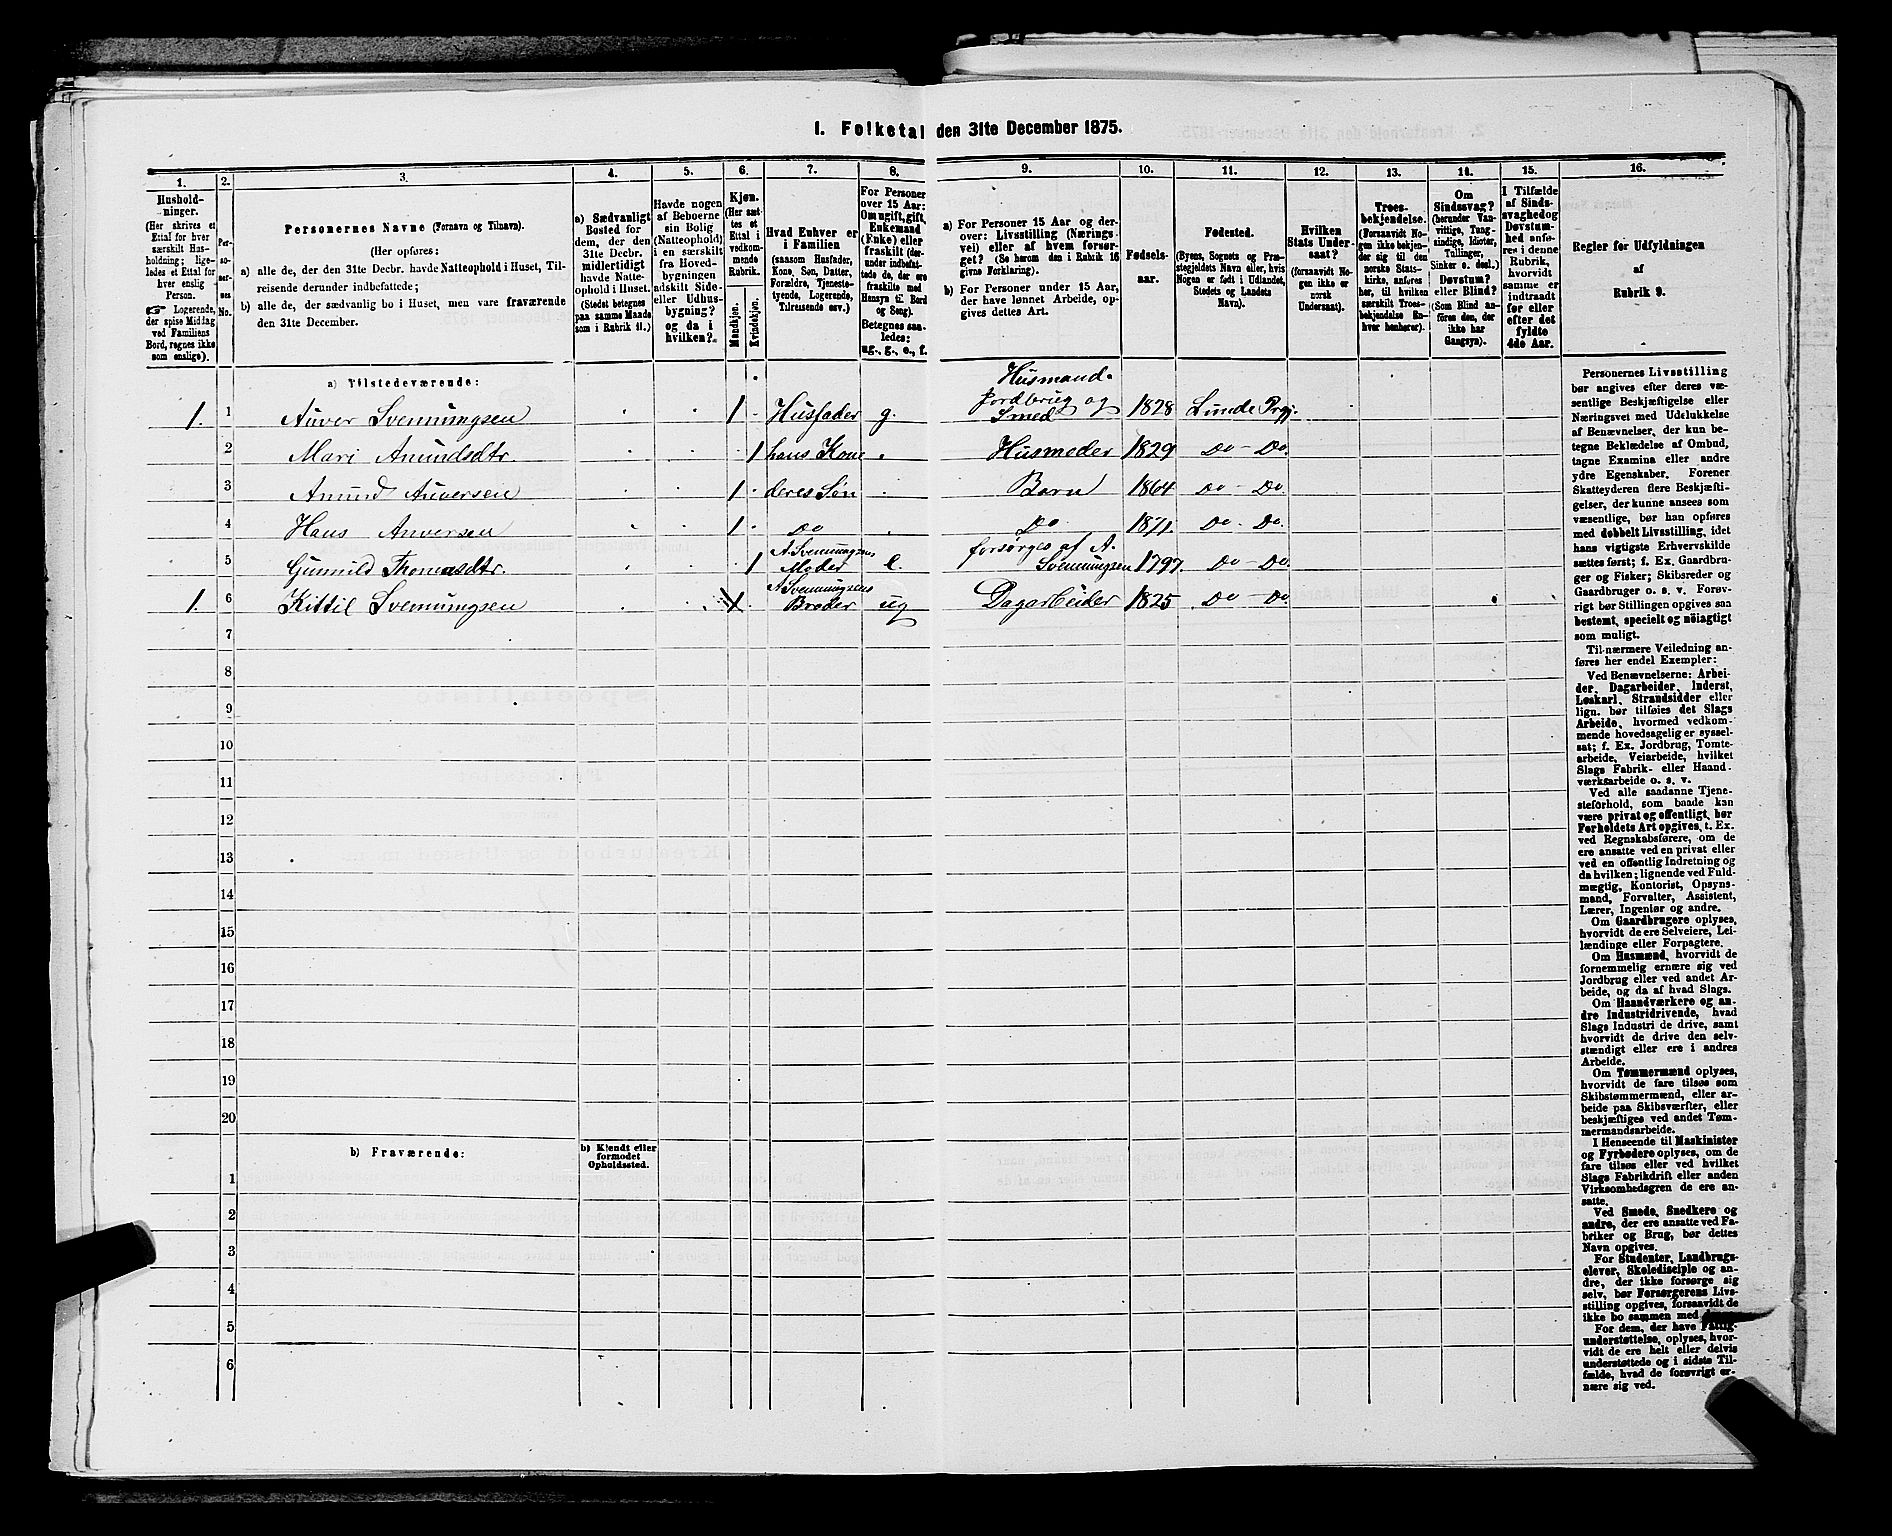 I. Folketal den 31te December 1875.
1.
2.
3.
4.
5.
6.
7.
8.
9.
10.
11.
12.
13.
14.
15.
16.
Hushold-
ninger.
(Her skrives et
Ettal for hver
særskilt Hus-
holdning; lige-
ledes et Ettal for
hver enslig
Person.
☛ Logerende,
der spise Middag
ved Familiens
Bord, regnes ikke
som enslige).
Per-
so-
ner-
nes
No.
Personernes Navne (Fornavn og Tilnavn).
(Her opføres:
a) alle de, der den 31te Decbr. havde Natteophold i Huset, Til-
reisende derunder indbefattede;
b) alle de, der sædvanlig bo i Huset, men vare fraværende
den 31te December.
a) Sædvanligt
Bosted for
dem, der den
31te Decbr.
midlertidigt
havde Natte-
ophold i Huset.
(Stedet betegnes
paa samme Maade
som i Rubrik 11.)
Havde nogen
af Beboerne
sin Bolig
(Natteophold)
i en særskilt
fra Hoved-
bygningen
adskilt Side-
eller Udhus-
bygning?
og da i
hvilken?
Kjøn.
(Her sæt-
tes et
Ettal i
vedkom-
mende
Rubrik.
Mandkjøn.
Kvindekjøn.
Hvad Enhver er
i Familien
(saasom Husfader,
Kone, Søn, Datter,
Forældre, Tjeneste-
tyende, Logerende,
Tilreisende osv.)
For Personer
over 15 Aar:
Om ugift, gift,
Enkemand
(Enke) eller
fraskilt (der-
under indbefat-
tede de, der ere
fraskilte med
Hensyn til Bord
og Seng).
Betegnes saa-
ledes:
ug., g., e., f.
a) For Personer 15 Aar og der-
over: Livsstilling (Nærings-
vei) eller af hvem forsør-
get? (Se herom den i Rubrik 16
givne Forklaring).
b) For Personer under 15 Aar,
der have lønnet Arbeide, op-
gives dettes Art.
Fødsels-
aar.
Fødested.
(Byens, Sognets og Præ-
stegjeldets Navn eller, hvis
Nogen er født i Udlandet,
Stedets og Landets
Navn).
Hvilken
Stats Under-
saat?
(forsaavidt No-
gen ikke er
norsk
Undersaat).
Troes-
bekjendelse.
(Forsaavidt No-
gen ikke bekjen-
der sig til den
norske Stats-
kirke, anføres
her, til hvilken
særskilt Troes-
bekjendelse En-
hver henhører).
Om
Sindssvag?
(herunder Van-
vittige, Tung-
sindige, Idioter,
Tullinger,
Sinker o. desl.)
Døvstum?
eller Blind?
(Som Blind an-
føres den, der
ikke har
Gangsyn).
I Tilfælde
af Sinds-
svaghed og
Døvstum-
hed anfø-
res i denne
Rubrik,
hvorvidt
samme er
indtraadt
før eller
efter det
fyldte
4de Aar.
Regler for Udfyldningen
af
Rubrik 9.
a) Tilstedeværende:
1. 1 Auver Svennungsen 1 Husfader g. Husmand. Jordbrug og Smed 1828 Lunde Prgj.
2 Mari Amundsdtr. 1 hans Kone Husmoder 1829 Do - Do.
3 Amund Auversen 1 deres Søn Barn 1864 Do - Do.
4 Hans Auversen 1 Do Do 1871. Do. Do.
5 Gunnild Thomasdtr. 1 A. Svennungsens Moder e. forsørges af A. Svennungsen 1797. Do - Do.
1. 6 Kittil Svennungsen 1 A. Svennungsens Broder ug Dagarbeider 1825 Do - Do
7
8
9
10
11
12
13
14
15
16
17
18
19
20
b) Fraværende:
b) Kjendt eller
formodet
Opholdssted.
1
2
3
4
5
6
Personernes Livsstilling
bør angives efter deres væ-
sentlige Beskjæftigelse eller
Næringsvei med Udelukkelse
af Benævnelser, der kun be-
tegne Beklædelse af Ombud,
tagne Examina eller andre
ydre Egenskaber. Forener
Skatteyderen flere Beskjæfti-
gelser, der kunne ansees som
væsentlige, bør han opføres
med dobbelt Livsstilling, idet
hans vigtigste Erhvervskilde
sættes først; f. Ex. Gaardbru-
ger og Fisker; Skibsreder og
Gaardbruger o. s. v. Forøv-
rigt bør Stillingen opgives saa
bestemt, specielt og nøiagtigt
som muligt.
Til nærmere Veiledning an-
føres her endel Exempler:
Ved Benævnelserne: Arbei-
der, Dagarbeider, Inderst,
Løskarl, Strandsidder eller
lign. bør tilføies det Slags
Arbeide, hvormed vedkom-
mende hovedsagelig er syssel-
sat; f. Ex. Jordbrug, Tomte-
arbeide, Veiarbeide, hvilket
Slags Fabrik- eller Haand-
værksarbeide o. s. v.
Ved alle saadanne Tjene-
steforhold, som baade kan
være privat og offentligt, bør
Forholdets Art opgives, t. Ex.
ved Regnskabsførere, om de
ere ansatte ved en privat eller
ved en offentlig Indretning og
da hvilken; lignende ved Fuld-
mægtig, Kontorist, Opsyns-
mand, Forvalter, Assistent,
Lærer, Ingeniør og andre.
Om Gaardbrugere oplyses,
hvorvidt de ere Selveiere, Lei-
lændinge eller Forpagtere.
Om Husmænd, hvorvidt de
fornemmelig ernære sig ved
Jordbrug eller ved andet Ar-
beide, og da af hvad Slags.
Om Haandværkere og an-
dre Industridrivende, hvad
Slags Industri de drive, samt
hvorvidt de drive den selv-
stændigt eller ere i andres
Arbeide.
Om Tømmermænd oplyses,
hvorvidt de fare tilsøs som
Skibstømmermænd, eller ar-
beide paa Skibsværfter, eller
beskjæftiges ved andet Tøm-
mermandsarbeide.
I Henseende til Maskinister
og Fyrbødere oplyses, om de
fare tilsøs eller ved hvilket
Slags Fabrikdrift eller anden
Virksomhedsgren de ere an-
satte.
Ved Smede, Snedkere og
andre, der ere ansatte ved Fa-
briker og Brug, bør dettes
Navn opgives.
For Studenter, Landbrugs-
elever, Skoledisciple og an-
dre, der ikke forsørge sig
selv, bør Forsørgerens Livs-
stilling opgives, forsaavidt de
ikke bo sammen med
For dem, der have Fattig-
understøttelse, oplyses, hvor-
vidt de ere helt eller delvis
understøttede og i sidste Til-
fælde, hvad de forøvrigt er-
nære sig ved.